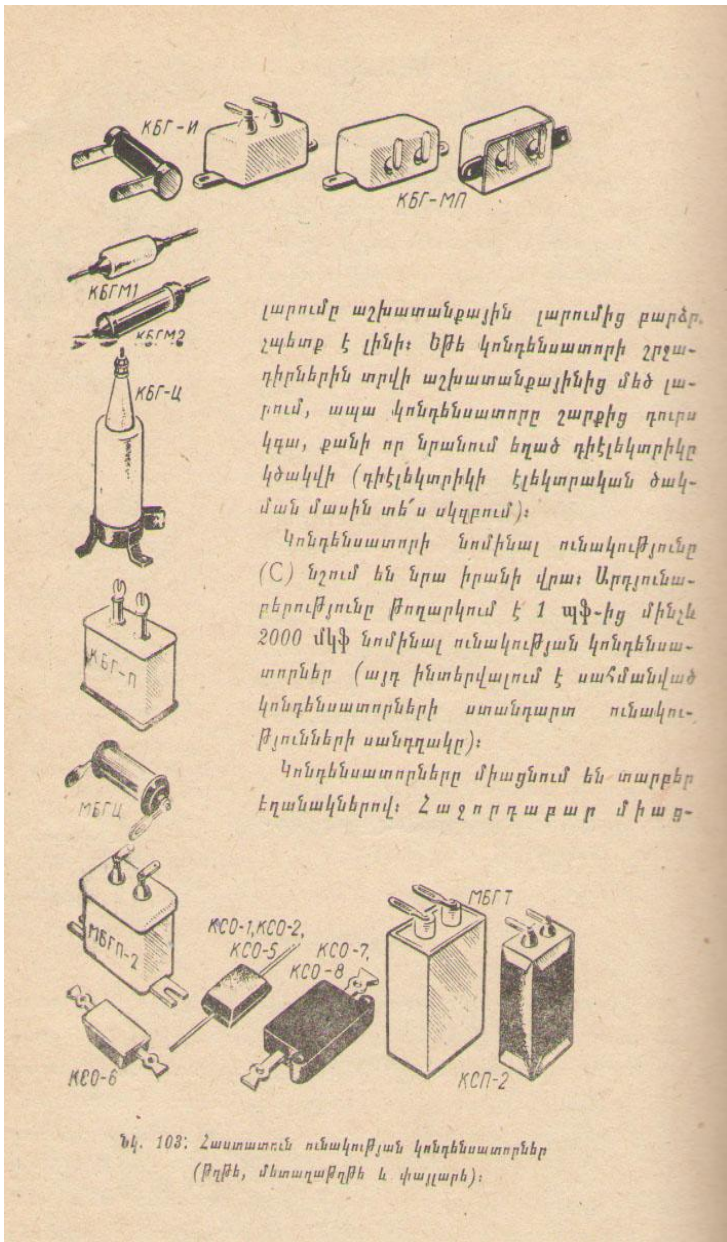 КБГ-И
КБГ-МП
КБГМ1
КБГМ2
КБГ-Ц
լարումը աշխատանքային լարումից բարձր
չպետք է լինի։ Եթե կոնդենսատորի շրջա-
դիրներին տրվի աշխատանքայինից մեծ լա-
րում, ապա կոնդենսատորը շարքից դուրս
կգա, քանի որ նրանում եղած դիէլեկտրիկը
կծակվի (դիէլեկտրիկի էլեկտրական ծակ-
ման մասին տե՛ս սկզբում)։
Կոնդենսատորի նոմինալ ունակությունը
(C) նշում են նրա իրանի վրա։ Արդյունա-
բերությունը թողարկում է 1 պֆ-ից մինչև
2000 մկֆ նոմինալ ունակության կոնդենսա-
տորներ (այդ ինտերվալում է սահմանված
կոնդենսատորների ստանդարտ ունակու-
թյունների սանդղակը)։
Կոնդենսատորները միացնում են տարբեր
եղանակներով։ Հաջորդաբար միաց-
КБГ-П
МБГЦ
МБГП-2
КСО-1, КСО-2,
КСО-5
КСО-7,
КСО-8
МБГТ
КСО-6
КСП-2
Նկ. 103։ Հաստատուն ունակության կոնդենսատորներ
(թղթե, մետաղաթղթե և փայլարե)։